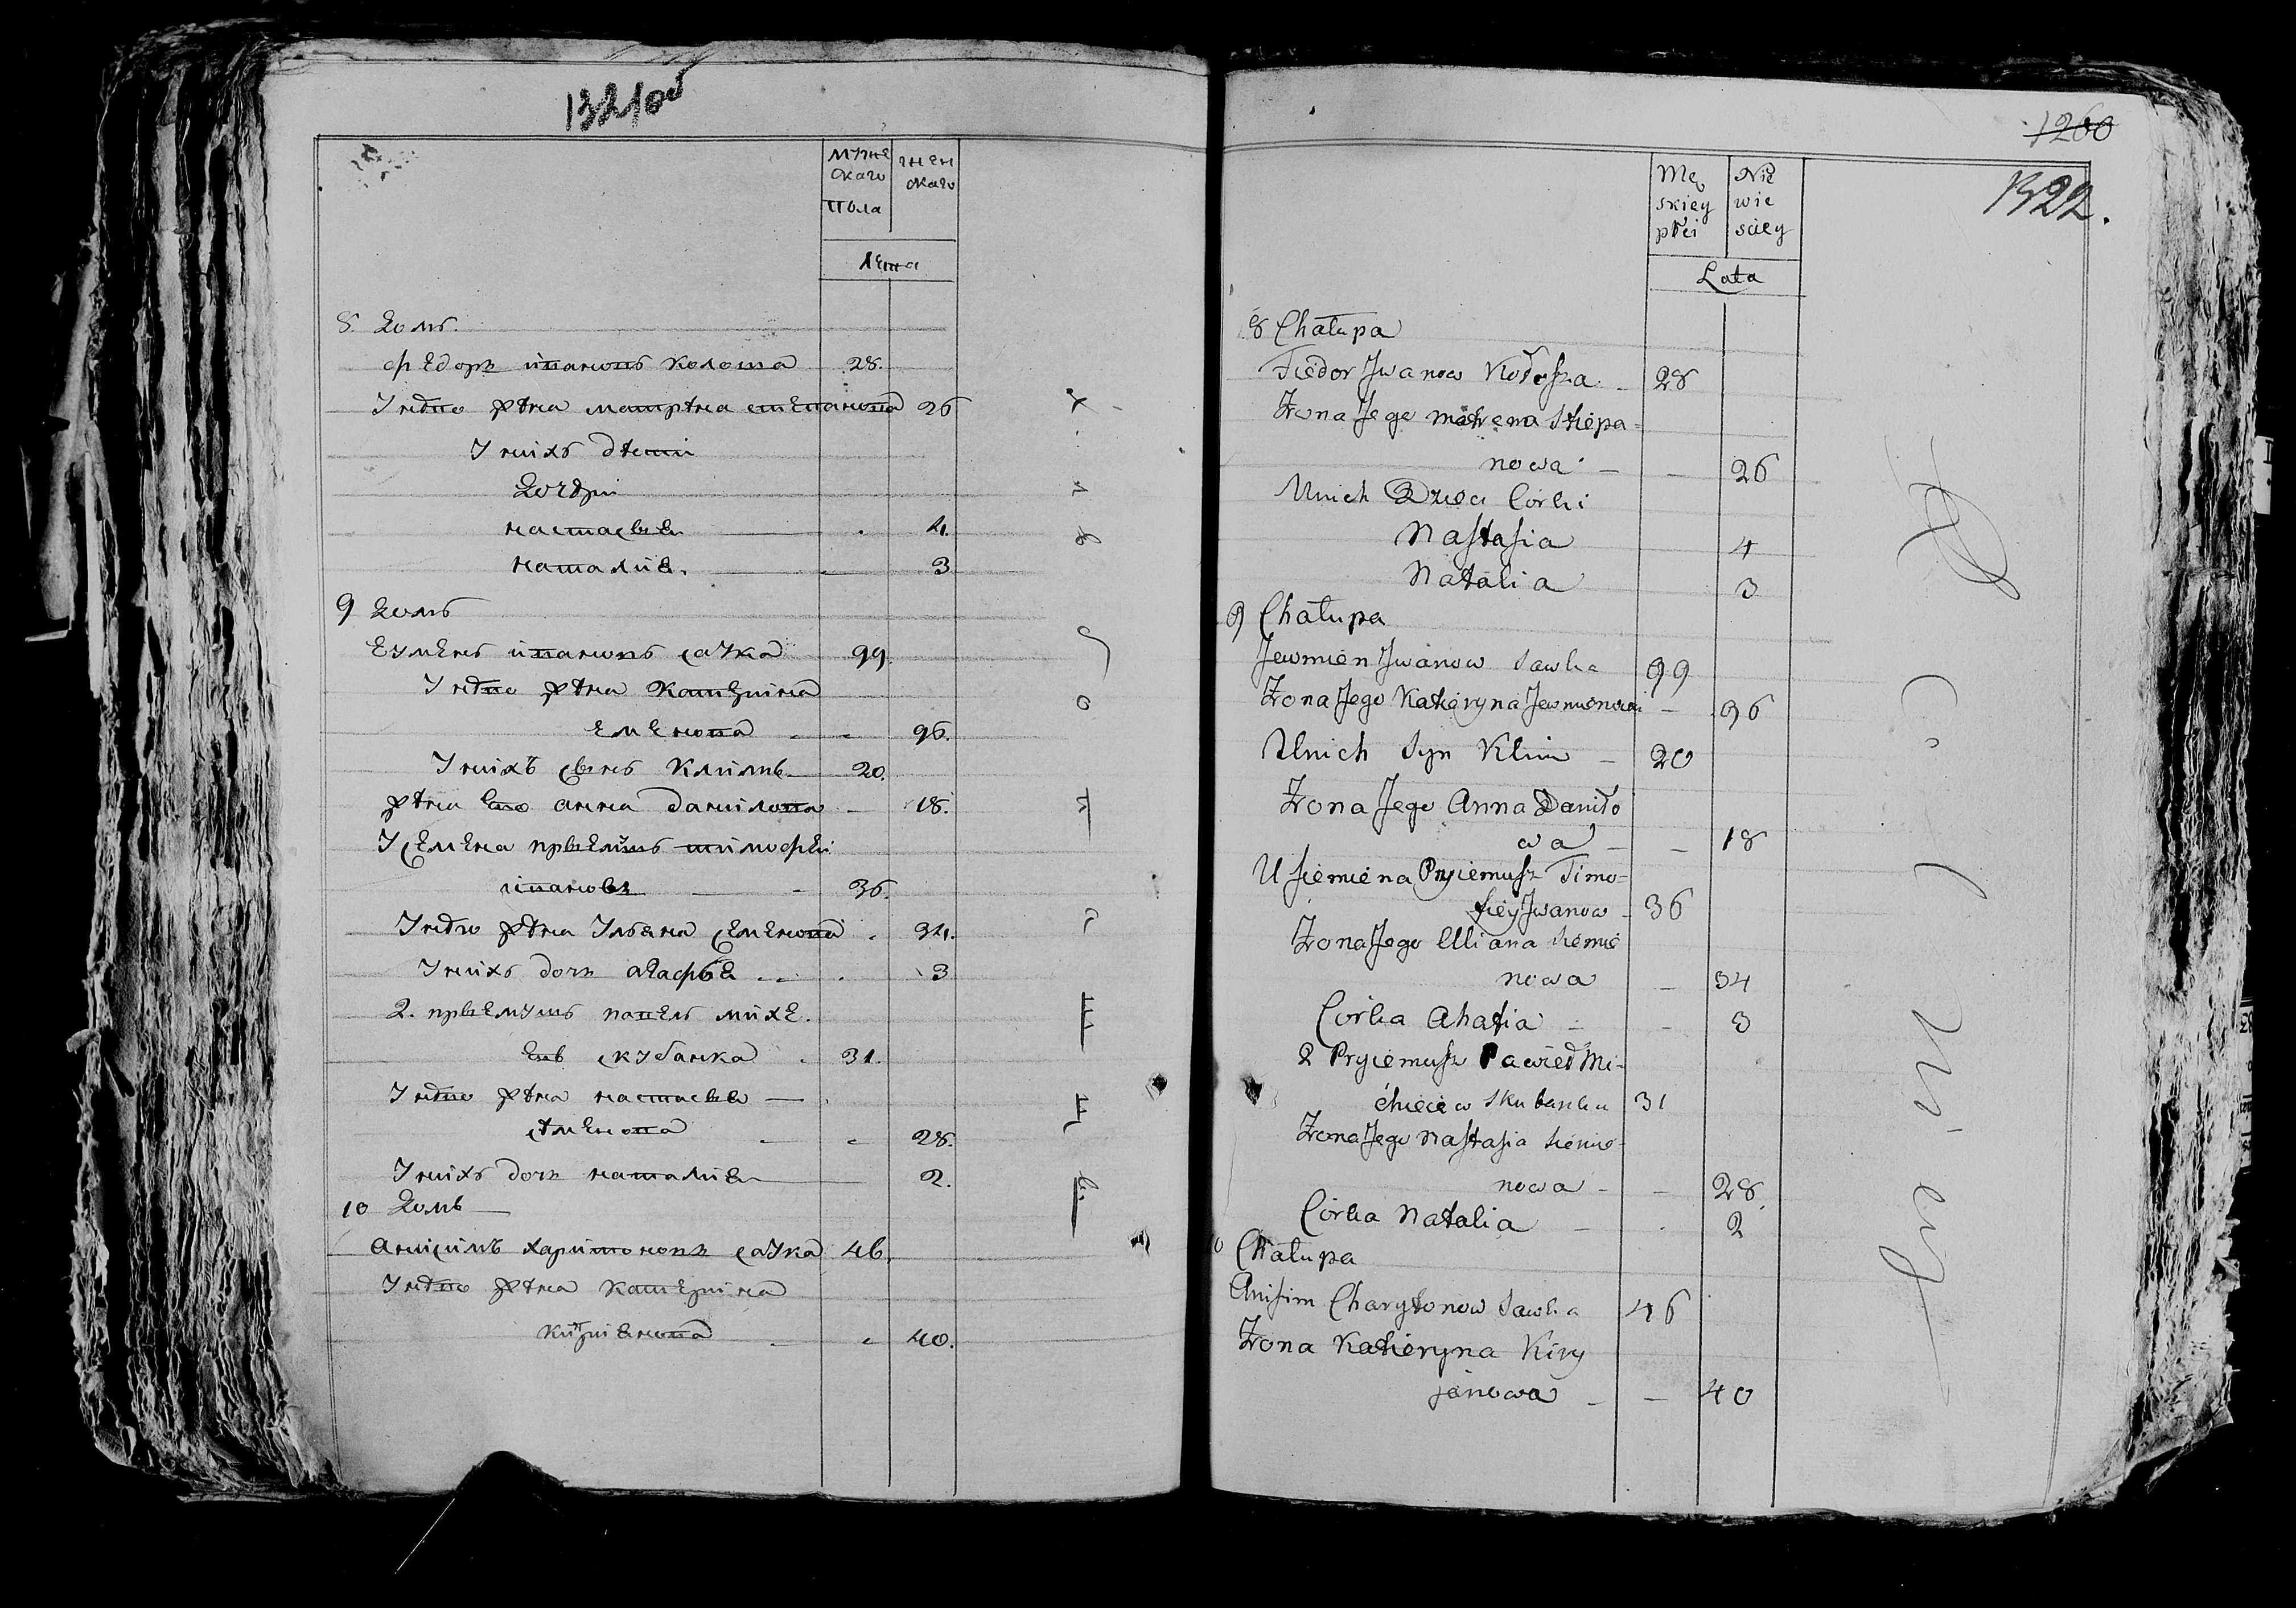 1321об
мужескаго
пола
женскаго
лета
8. Домъ.
Федоръ ивановъ колоша 28.
У него жена матрена степанова 26
У нихъ дети
Дочери
настасья 4.
наталия. 3
9 Домъ
Еумень ивановъ саука 99.
У него жена катерина
Еменова 96.
У нихъ сынъ Климъ 20.
жена Его анна данилова 18.
У семена приемышъ тимофеи
ивановъ 36.
У него жена Ульяна семенова 34.
У нихъ дочь агафья 3
2. приемушъ павелъ михе
евъ скубанка 31.
У него жена настасья
семенова 28.
У нихъ дочь наталия 2.
10 Домъ
анисимъ харитоновъ саука 46.
У него жена катерина
кириянова 40.
1260
1322.
Męskiey płci
Niewiesciey
Lata
8 Chałupa
Fiedor Jwanow Kołosza 28
Żona Jego Matrena Stiepa=
nowa 26
U nich Dzieci Corki
Nastasia 4
Natalia 3
9 Chałupa
Jewmien Jwanow Sawka 99
Żona Jego Katieryna Jewmienowa 96
U nich Syn Klim 20
Żona Jego Anna Daniło
wa 18
U Siemiena Pryiemusz Timo=
fiey Jwanow 36
Żona Jego Uliana Siemie
nowa 34
Corka Ahafia 3
2 Pryiemusz Pawieł Mi-
chieiew Skubanka 31
Żona Jego Nastasia Siemie-
nowa 28
Corka Natalia 2
10 Chałupa
Anisim Charytonow Sawka 46
Żona Katieryna Kiry
janowa 40